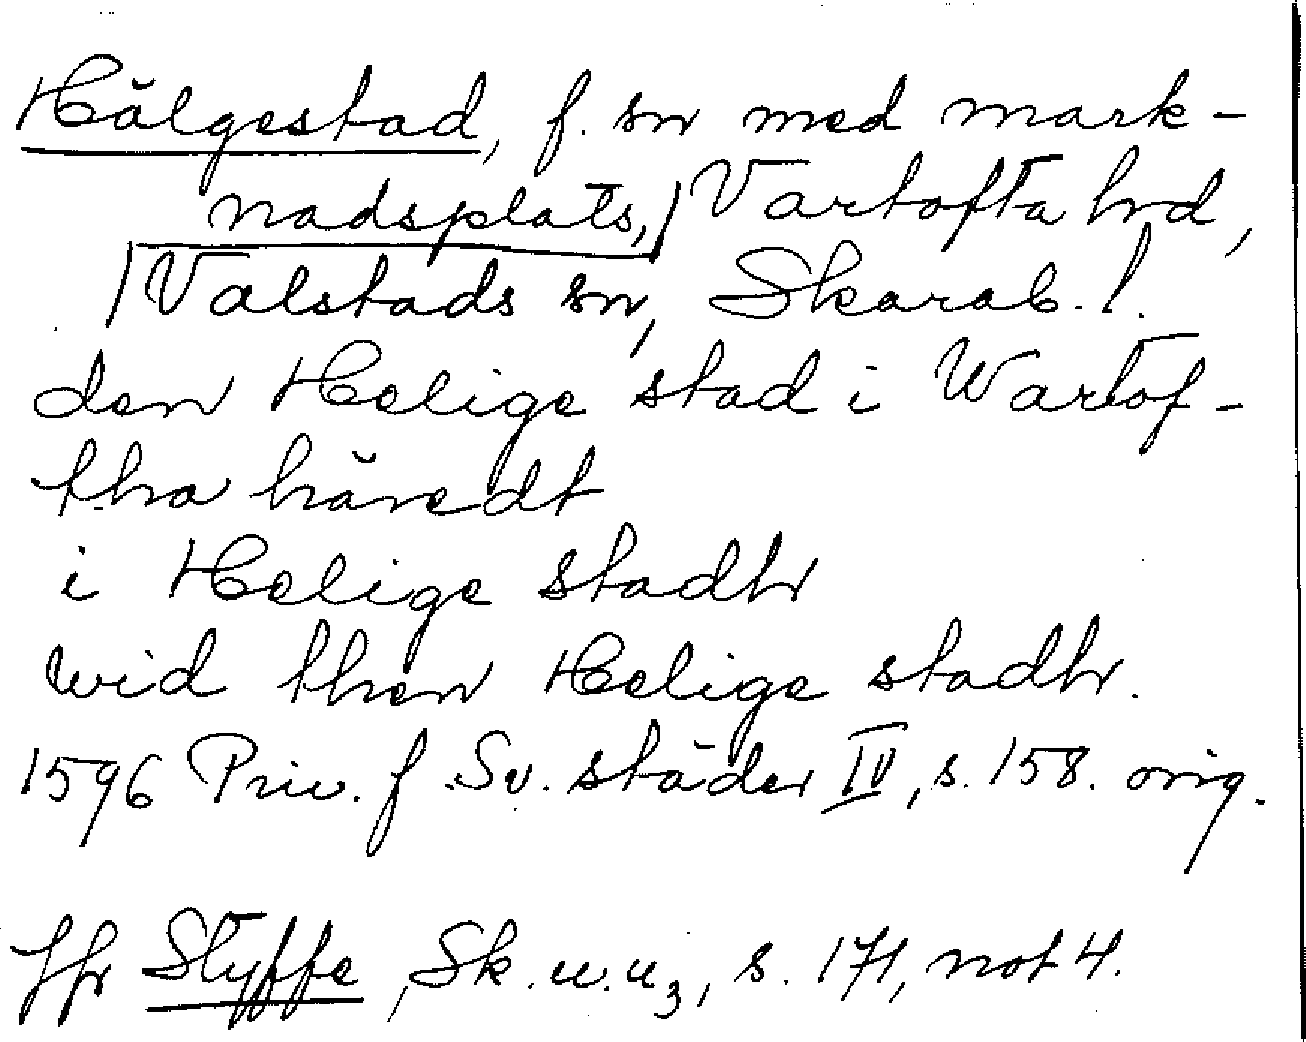 Hälgestad, f. sn med mark-
nadsplats, Vartofta hrd,
Valstads sn, Skarab. l.
den Helige stad i Wartof-
tha häredt
i Helige stadh
wid then Helige stadh.
1596 Priv. f Sv. städer IV, s. 158. orig.
Jfr Styffe, Sk. u. u3, s. 171, not 4.